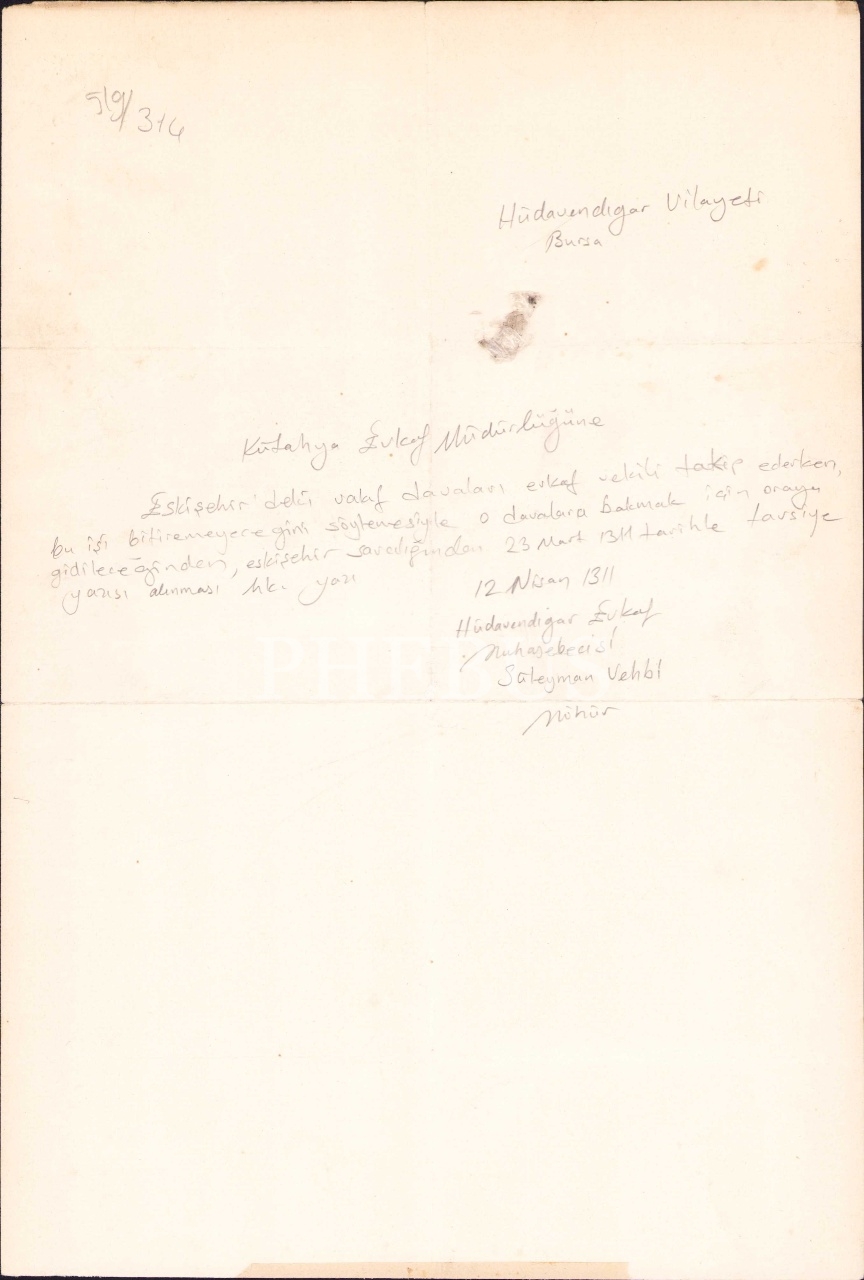 519/314
Hüdavendigar Vilayeti
Bursa
Kütahya Evkaf Müdürlüğüne
Eskişehir'deki vakıf davaları evkaf vekili takip ederken,
bu işi bitiremeyeceğini söylemesiyle o davalara bakmak için oraya
gidileceğinden, eskişehir savcılığından 23 Mart 1311 tarihle tavsiye
yazısı alınması hk. yazı
12 Nisan 1311
Hüdavendigar Evkaf
Muhasebecisi
Süleyman Vehbi
Mühür